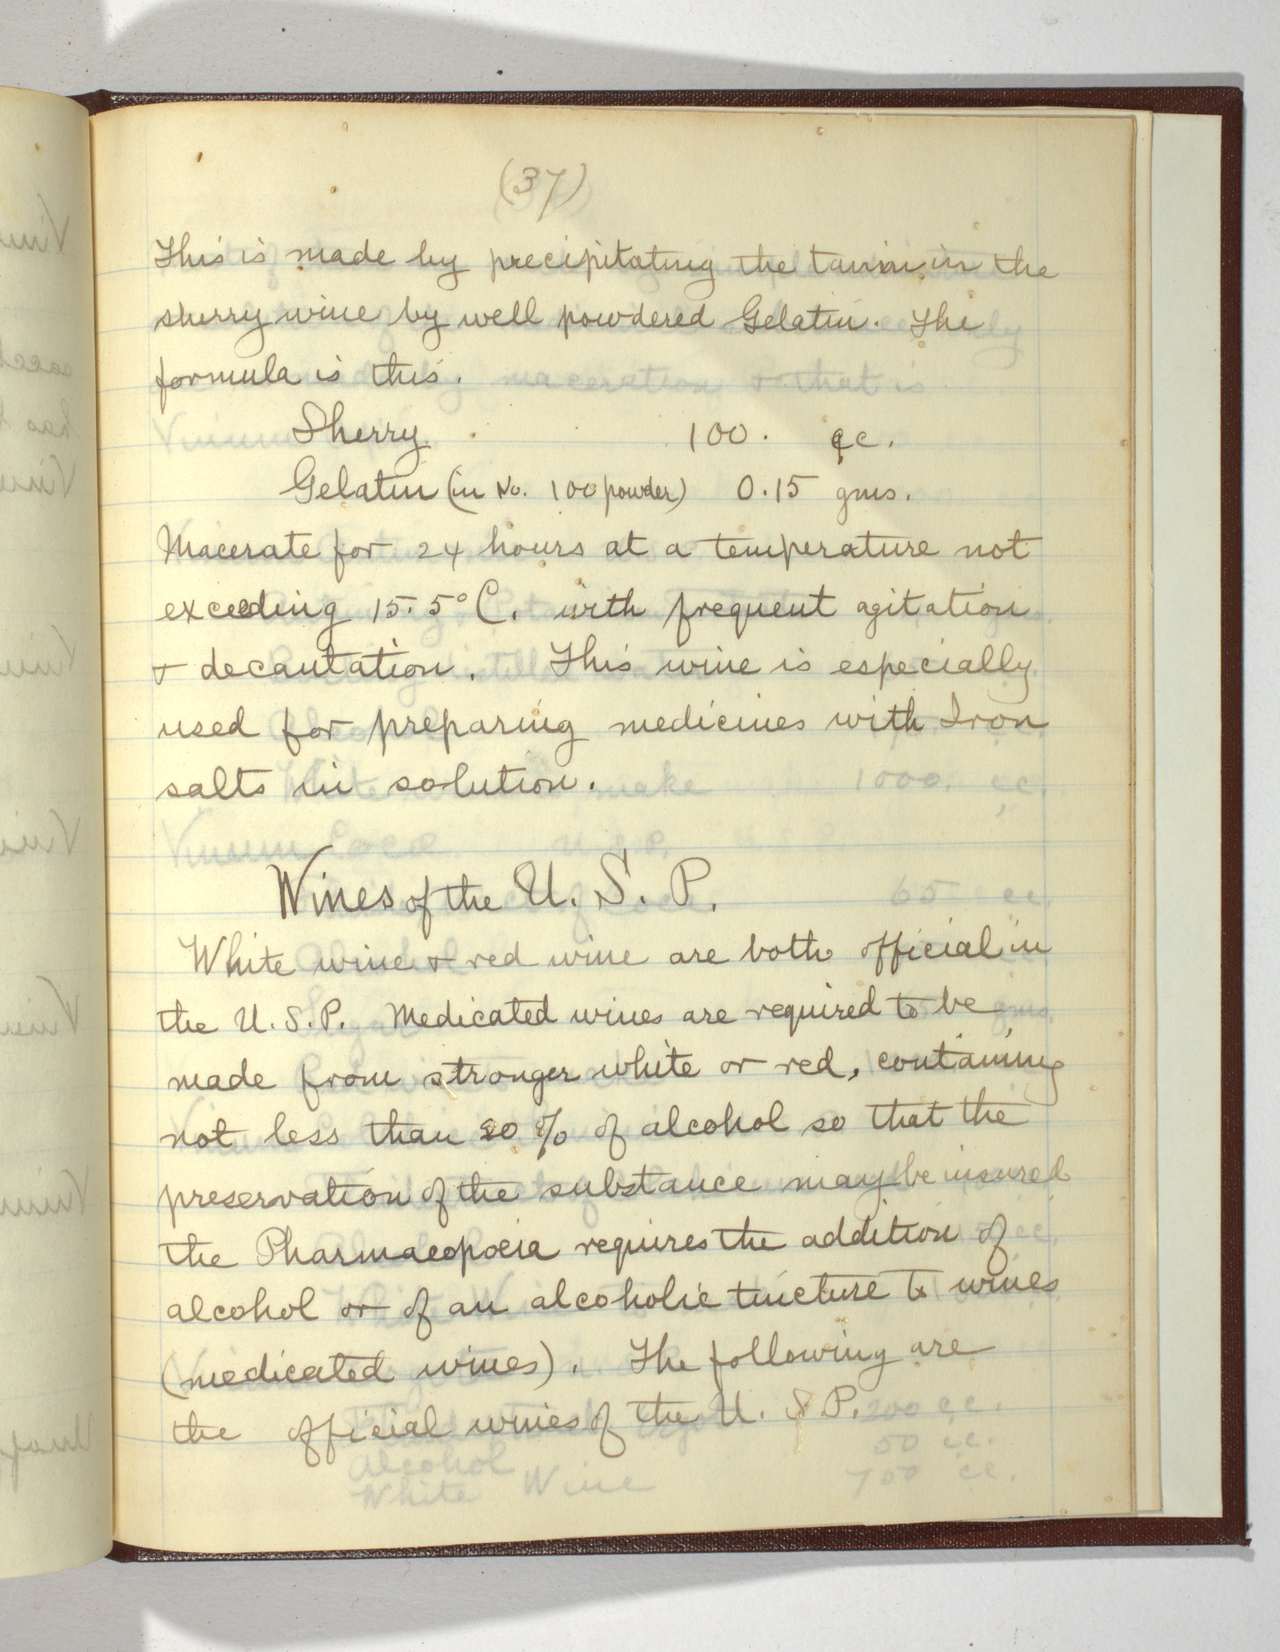 (37)
This is made by precipitating the tannin in the
sherry wine by well powdered Gelatin. The
formula is this.
Sherry. 100. cc.
Gelatin (in No. 100 powder) 0.15 gms.
Macerate for 24 hours at a temperature not
exceeding 15.5° C. with frequent agitation
& decantation. This wine is especially
used for preparing medicines with Iron
salts in solution.
Wines of the U. S. P.
White wine & red wine are both official in
the U. S. P. Medicated wines are required to be
made from stronger white or red, containing
not less than 20 % of alcohol so that the
preservation of the substance may be insured
the Pharmacopoeia requires the addition of
alcohol or of an alcoholic tincture to wines
(medicated wines). The following are
the official wines of the U. S. P.